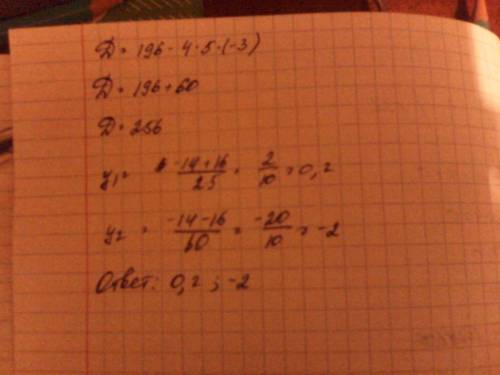 D = 196 - 4·5·(-3)
D = 196 + 60
D = 256
y1 = -14+16/25 = 2/10 = 0,2
y2 = -14-16/10 = -20/10 = -2
Ответ: 0,2 ; -2